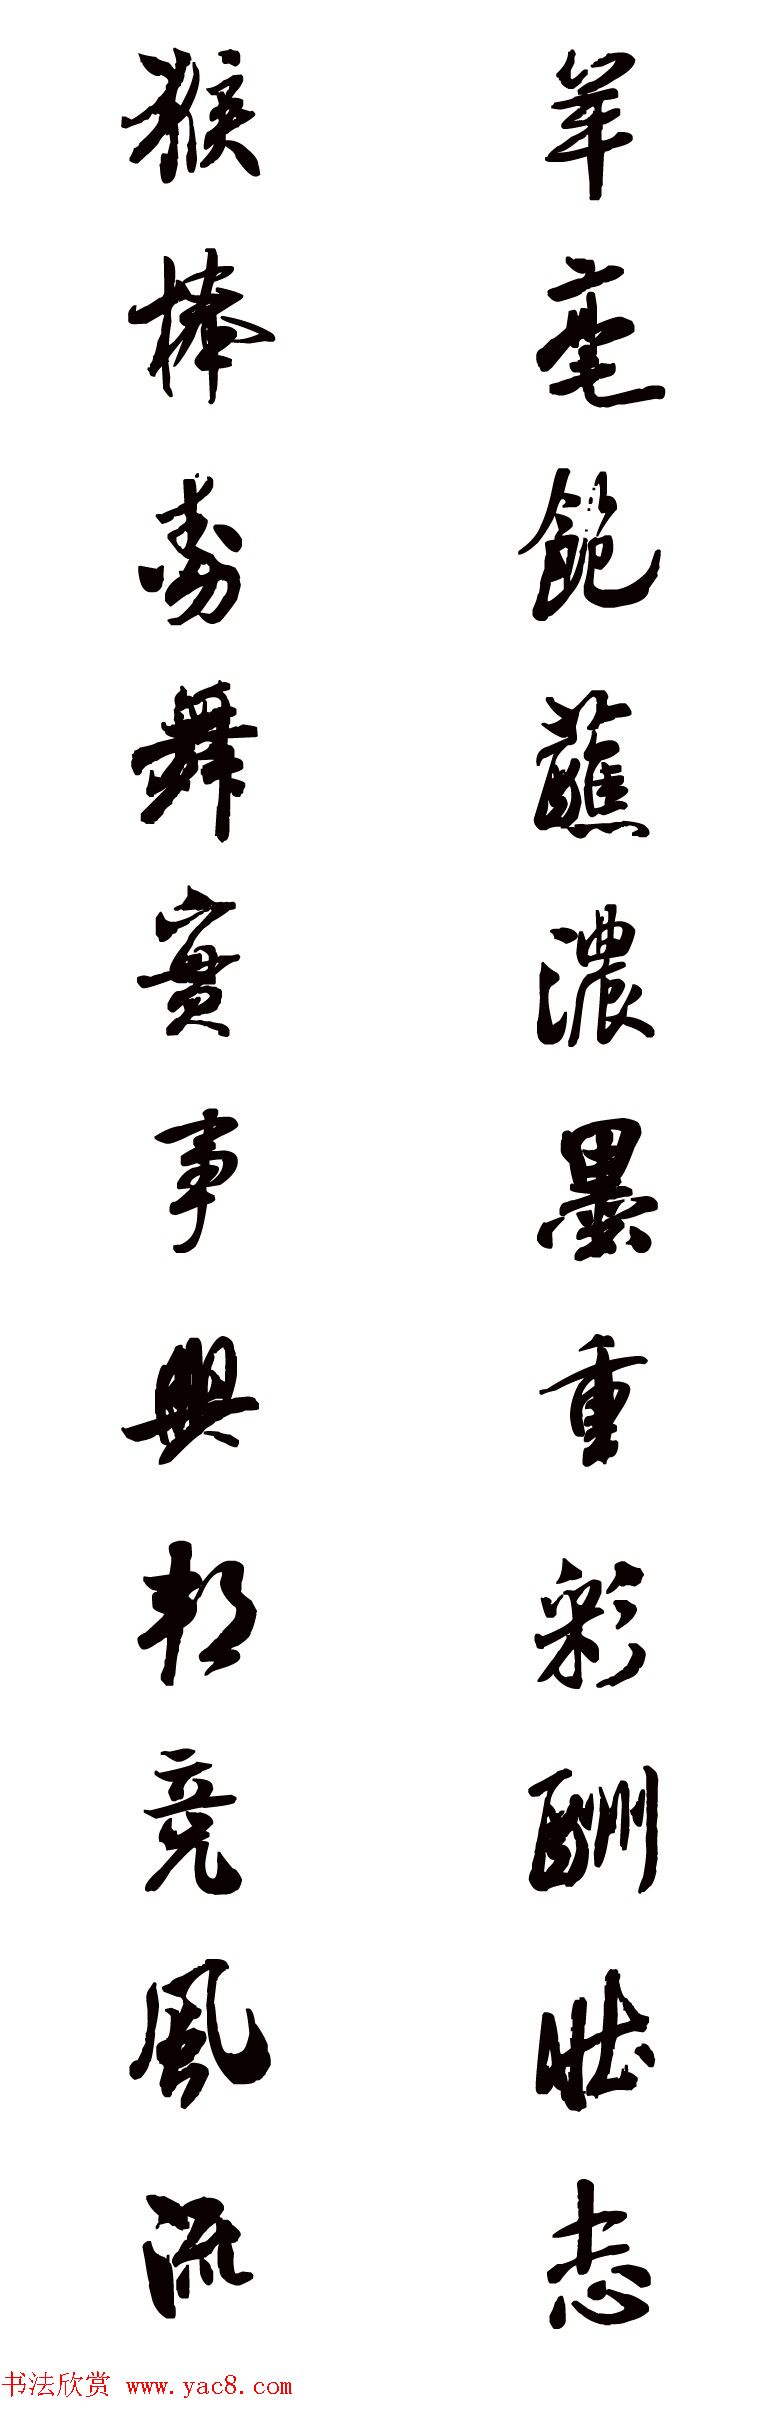 羊毫飽蘸濃墨重彩酬壯志
猴棒勁舞實事興邦竞風流
书法欣赏 www.yac8.com